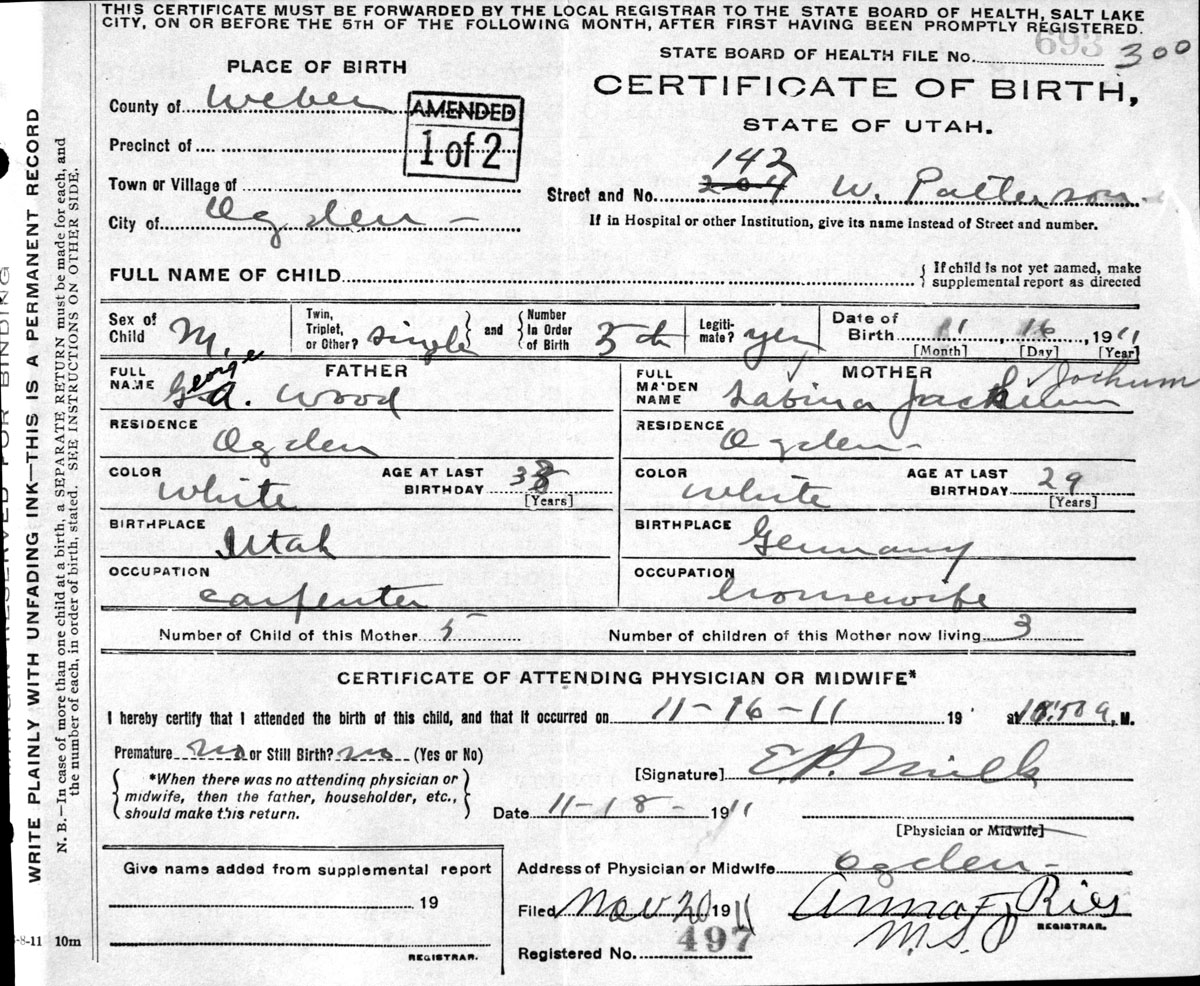 THIS CERTIFICATE MUST BE FORWARDED BY THE LOCAL REGISTRAR TO THE STATE BOARD OF HEALTH, SALT LAKE
CITY, ON OR BEFORE THE 5TH OF THE FOLLOWING MONTH, AFTER FIRST HAVING BEEN PROMPTLY REGISTERED.
693
STATE BOARD OF HEALTH FILE No. 300
PLACE OF BIRTH
CERTIFICATE OF BIRTH,
STATE OF UTAH.
County of Weber
AMENDED
1 of 2
Precinct of
Town or Village of
142
Street and No. 204 W. Patterson
City of Ogden
If in Hospital or other Institution, give its name instead of Street and number.
FULL NAME OF CHILD
{ If child is not yet named, make
supplemental report as directed
Sex of Child M.
Twin, Triplet, or Other? single } and { Number In Order of Birth 5th
Legiti-mate? yes
Date of Birth 11, 16, 1911
[Month] [Day] [Year]
FATHER
FULL NAME George A. Wood
MOTHER
FULL MAIDEN NAME Sabina Jochum
RESIDENCE Ogden
RESIDENCE Ogden
COLOR White
AGE AT LAST BIRTHDAY 38 [Years]
COLOR White
AGE AT LAST BIRTHDAY 29 [Years]
BIRTHPLACE Utah
BIRTHPLACE Germany
OCCUPATION carpenter
OCCUPATION housewife
Number of Child of this Mother 5
Number of children of this Mother now living 3
CERTIFICATE OF ATTENDING PHYSICIAN OR MIDWIFE*
I hereby certify that I attended the birth of this child, and that it occurred on 11-16-11 19 at M.
Premature no or Still Birth? no (Yes or No)
{ *When there was no attending physician or
midwife, then the father, householder, etc.,
should make this return. }
[Signature] E.P. Mills
Date 11-18- 1911
[Physician or Midwife]
Give name added from supplemental report
19
REGISTRAR.
Address of Physician or Midwife Ogden
Filed Nov 20 1911
Anna F Ries
M.S.
REGISTRAR.
Registered No. 497
-8-11 10m
WRITE PLAINLY WITH UNFADING INK—THIS IS A PERMANENT RECORD
N. B.—In case of more than one child at a birth, a SEPARATE RETURN must be made for each, and
the number of each, in order of birth, stated. SEE INSTRUCTIONS ON OTHER SIDE.
MARGIN RESERVED FOR BINDING